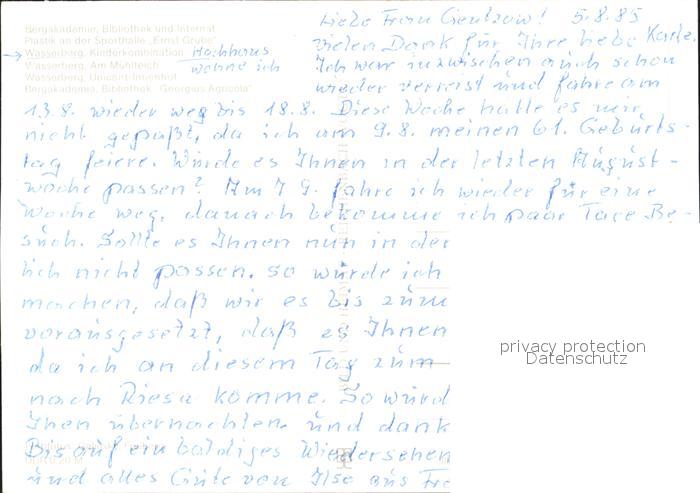 Bergakademie, Bibliothek und Internat
Plastik an der Sporthalle „Ernst Grube“
Wasserberg, Kinderkombination
Wasserberg, Am Mühlteich
Wasserberg, Unicent-Innenhof
Bergakademie, Bibliothek „Georgius Agricola“
Hochhaus
wohne ich
Liebe Frau Gentzow! 5.8.85
vielen Dank für Ihre liebe Karte.
Ich war inzwischen auch schon
wieder verreist und fahre am
13.8. wieder weg bis 18.8. Diese Woche hätte es mir
nicht gepaßt, da ich am 9.8. meinen 61. Geburts-
tag feiere. Würde es Ihnen in der letzten August-
woche passen? Am 7.9. fahre ich wieder für eine
Woche weg, danach bekomme ich paar Tage Be-
such. Sollte es Ihnen nun in der
lich nicht passen, so würde ich
machen, daß wir es bis zum
vorausgesetzt, daß es Ihnen
da ich an diesem Tag zum
nach Riesa komme. So würd
Ihnen übernachten und dank
Bis auf ein baldiges Wiedersehen
und alles Gute von Ilse aus Fre
privacy protection
Datenschutz